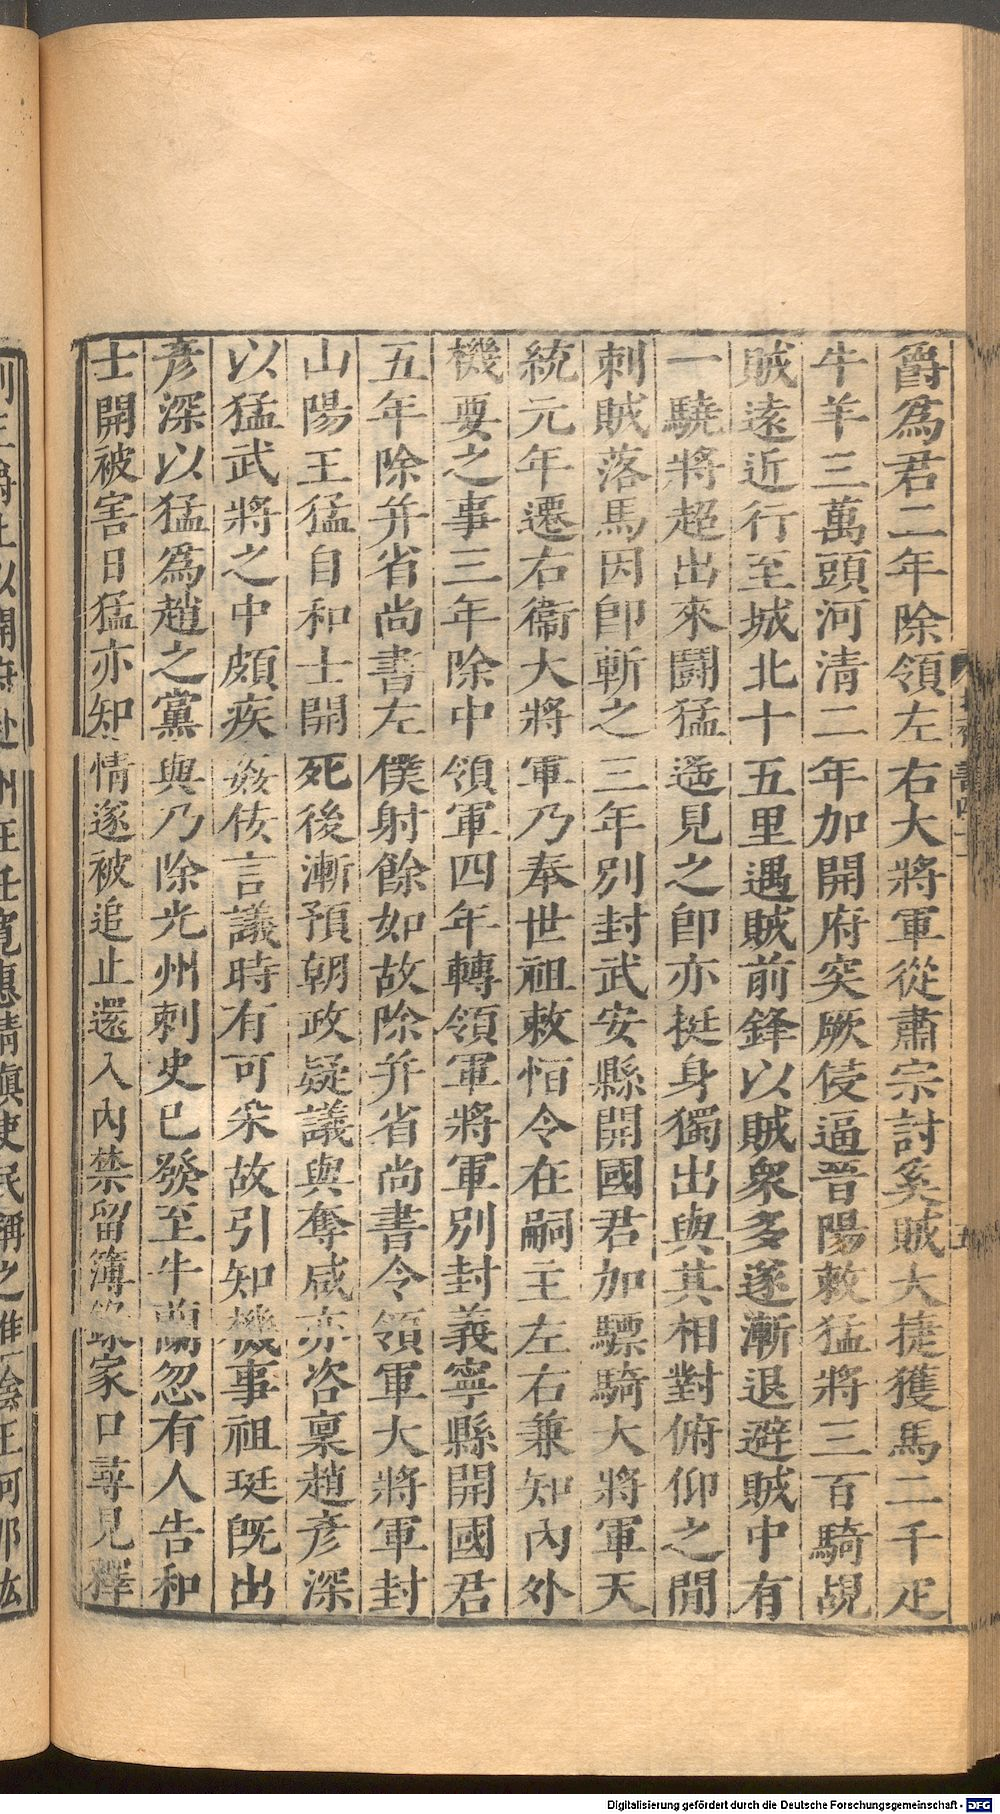 爵爲君二年除領左右大將軍從肅宗討奚賊大捷獲馬二千疋
牛羊三萬頭河清二年加開府突厥侵逼晉陽敕猛將三百騎覘
賊遠近行至城北十五里遇賊前鋒以賊衆多遂漸退避賊中有
一驍將超出來鬭猛遥見之卽亦挺身獨出與其相對俯仰之閒
刺賊落馬因卽斬之三年別封武安縣開國君加驃騎大將軍天
統元年遷右衞大將軍乃奉世祖敕恒令在嗣主左右兼知內外
機要之事三年除中領軍四年轉領軍將軍別封義寧縣開國君
五年除并省尚書左僕射餘如故除并省尚書令領軍大將軍封
山陽王猛自和士開死後漸預朝政疑議與奪咸亦咨稟趙彥深
以猛武將之中頗疾姦佞言議時有可采故引知機事祖珽旣出
彥深以猛爲趙之黨與乃除光州刺史已發至牛蘭忽有人告和
士開被害日猛亦知情遂被追止還入內禁留簿錄家口尋見釋
Digitalisierung gefördert durch die Deutsche Forschungsgemeinschaft - DFG